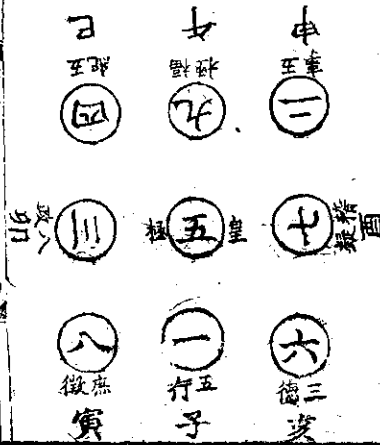 巳
午
申
五紀
福極
五事
四
九
二
卯
八政
三
皇
五
極
七
稽疑
酉
八
一
六
庶徵
五行
三德
寅
子
亥